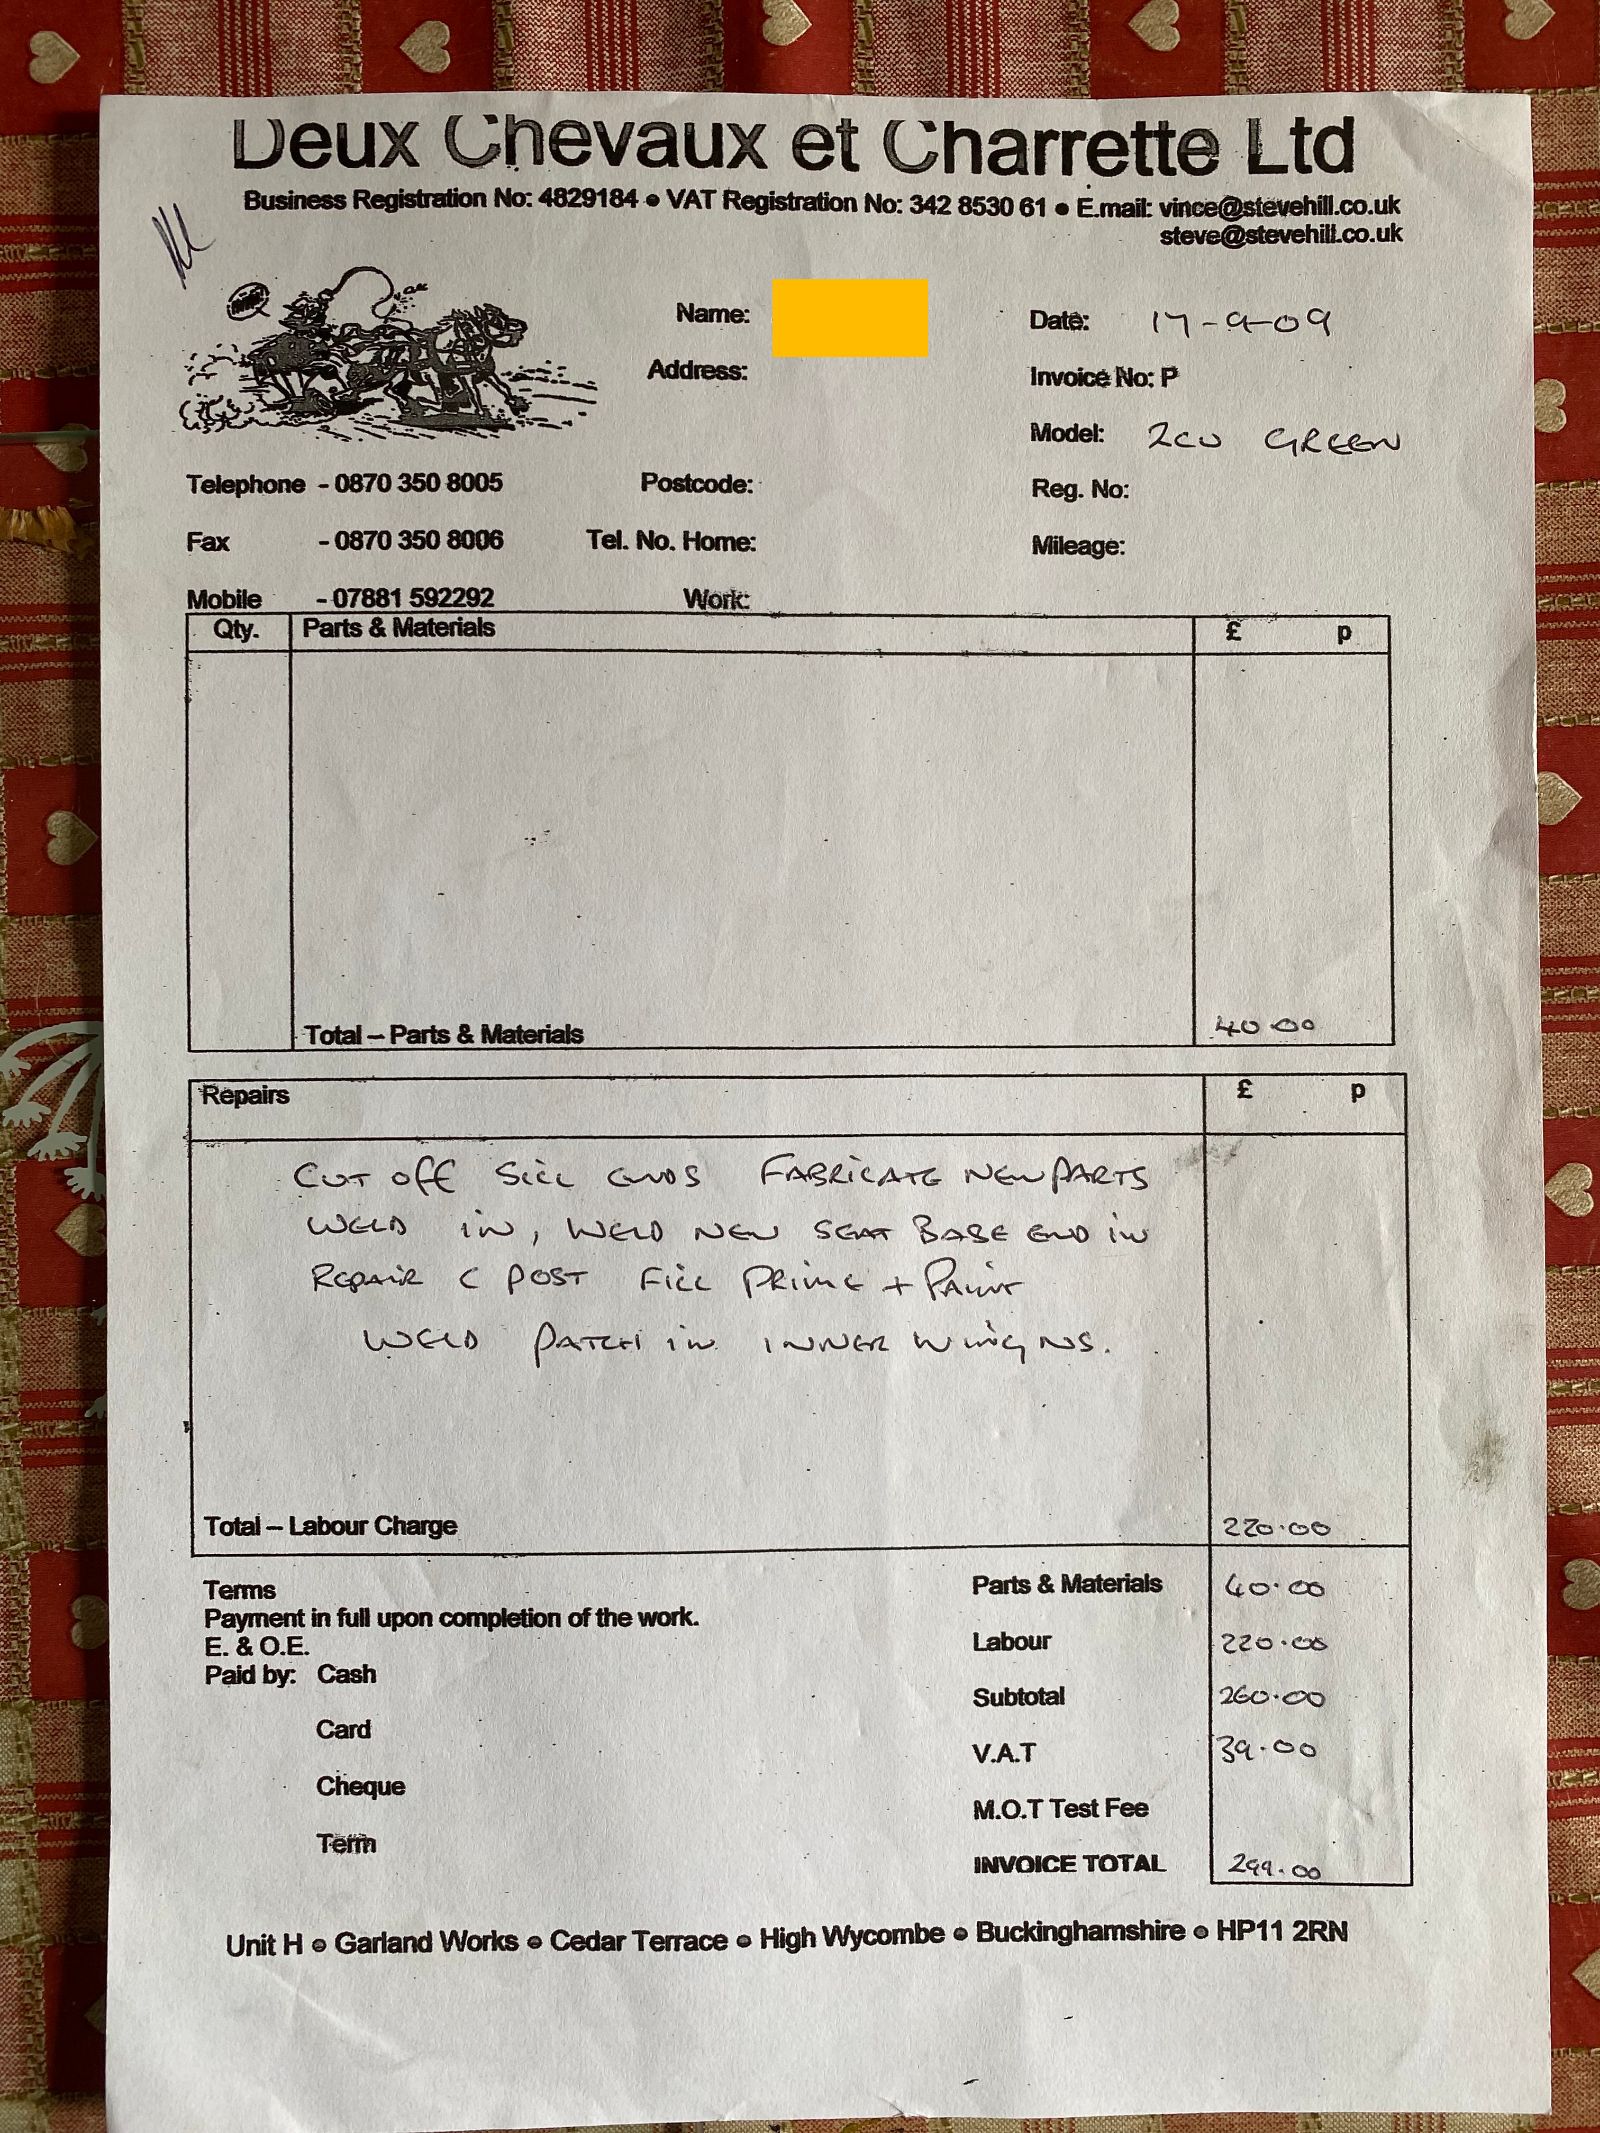 Deux Chevaux et Charrette Ltd
Business Registration No: 4829184 ● VAT Registration No: 342 8530 61 ● E.mail: vince@stevehill.co.uk
steve@stevehill.co.uk
Name:
Date: 17-9-09
Address:
Invoice No: P
Model: 2CV GREEN
Telephone - 0870 350 8005
Postcode:
Reg. No:
Fax - 0870 350 8006
Tel. No. Home:
Mileage:
Mobile - 07881 592292
Work:
Qty. Parts & Materials £ p
Total – Parts & Materials 40.00
Repairs £ p
CUT OFF SILL ENDS FABRICATE NEW PARTS
WELD IN, WELD NEW SEAT BASE END IN
REPAIR C POST FILL PRIME + PAINT
WELD PATCH IN INNER WING NS.
Total – Labour Charge 220.00
Terms
Payment in full upon completion of the work.
E. & O.E.
Paid by: Cash
Card
Cheque
Term
Parts & Materials 40.00
Labour 220.00
Subtotal 260.00
V.A.T 39.00
M.O.T Test Fee
INVOICE TOTAL 299.00
Unit H ● Garland Works ● Cedar Terrace ● High Wycombe ● Buckinghamshire ● HP11 2RN